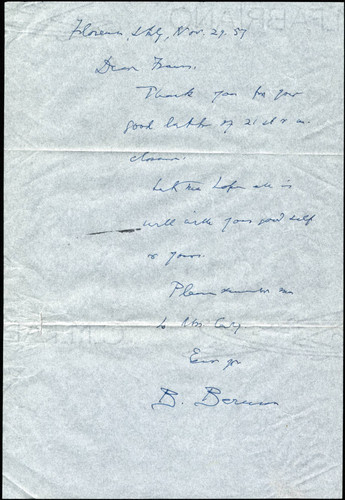 FABRIANO
Florence, Italy, Nov. 29. 57
Dear Frann.
Thank you for your
good letter of 21st &
Let me hope all is
well with your good self
& yours.
Please remember me
to Mrs
Ever yr
B. Berenson